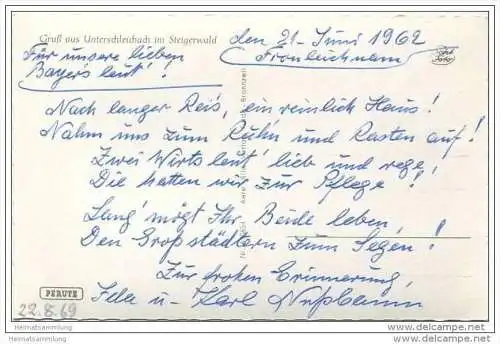 Gruß aus Unterschleichach im Steigerwald
den 21. Juni 1962
Fronleichnam
Für unsere lieben
Bayers leut'!
Echt Foto
Nach langer Reis, ein reinlich Haus!
Nahm uns zum Ruh'n und Rasten auf!
Zwei Wirtsleut' lieb und rege,
Die hatten wir zur Pflege!
Lang' mögt Ihr Beide leben,
Den Großstädtern zum Segen!
Zur frohen Erinnerung,
u. Karl Nußbaum
PERUTZ
22.8.69
Heimatsammlung
www.heimatsammlung.de